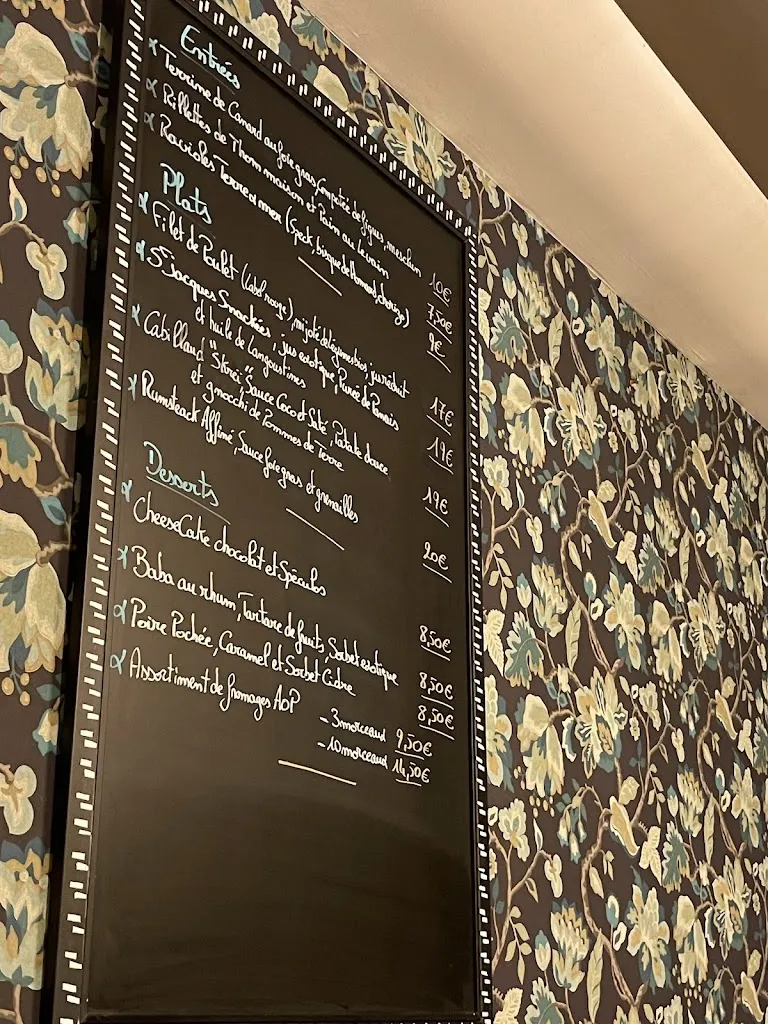 Entrées
Terrine de Canard au foie gras, Compotée de figues, mesclun 10€
Rillettes de Thon maison et Pain au levain 7,50€
Ravioles Terre et mer (Speck, bisque de Homard, chorizo) 9€
Plats
Filet de Poulet (Label rouge), mijoté de légumes bio, jus réduit 17€
St Jacques Snackées, jus exotique, Purée de Panais
et huile de Langoustines 19€
Cabillaud "Skreï" Sauce Coco et Saté, Patate douce
et gnocchi de Pommes de Terre 19€
Rumsteack Affiné, Sauce foie gras et grenailles 20€
Desserts
CheeseCake chocolat et Spéculos 8,50€
Baba au rhum, Tartare de fruits, Sorbet exotique 8,50€
Poire Pochée, Caramel et Sorbet Cidre 8,50€
Assortiment de fromages AOP
- 3 morceaux 9,50€
- 10 morceaux 14,50€